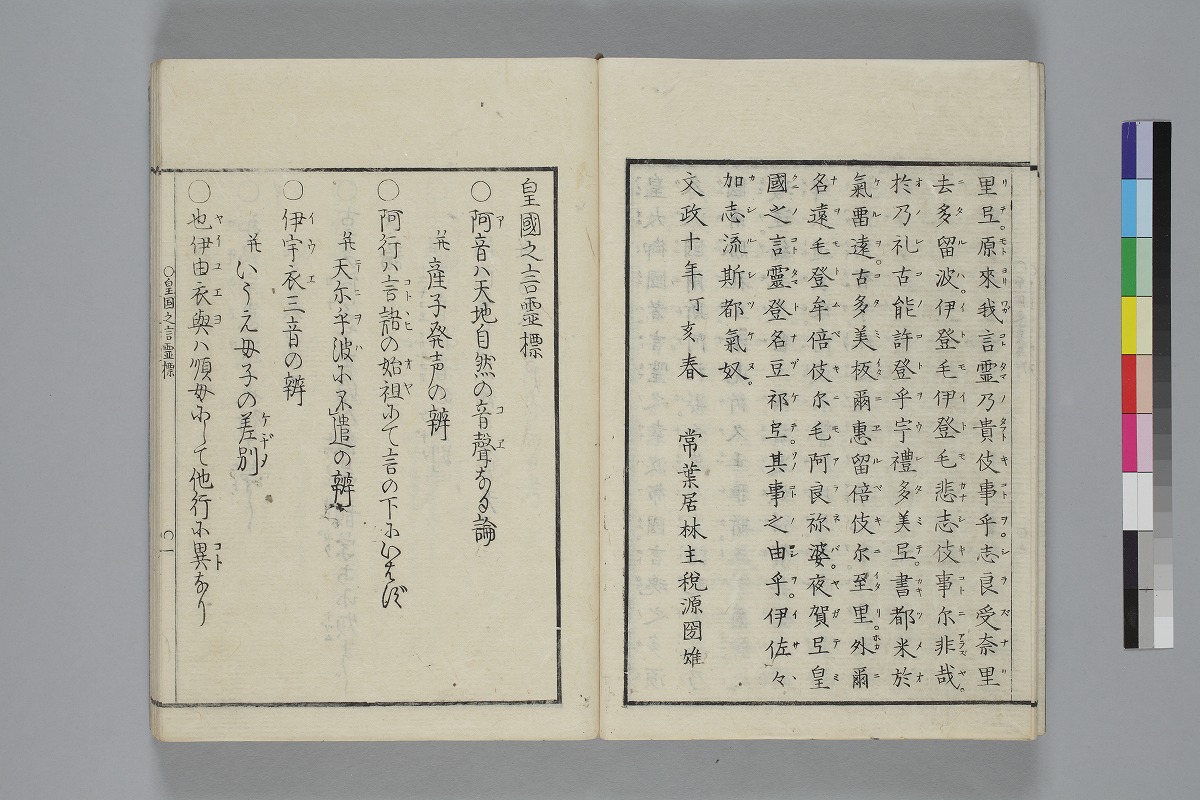 里弖原來我言靈乃貴伎事乎志良受奈里
去多留波伊登毛伊登毛悲志伎事尓非哉
於乃礼古能許登乎宇禮多美弖書都米於
氣畱遠古多美板爾惠留倍伎尓至里外爾
名遠毛登牟倍伎尓毛阿良祢婆夜賀弖皇
國之言靈登名豆祁弖其事之由乎伊佐々
加志流斯都氣奴
文政十年丁亥春　常葉居林主税源圀雄
皇國之言霊標
〇阿音ハ天地自然の音聲なる論
并産子発声の辨
〇阿行ハ言語の始祖にて言の下にいはず
并天尓乎波に不遣の辨
〇伊宇衣三音の辨
并いうえ母子の差別
〇也伊由衣與ハ順毋にして他行に異なり
〇皇国之言霊標
〇一